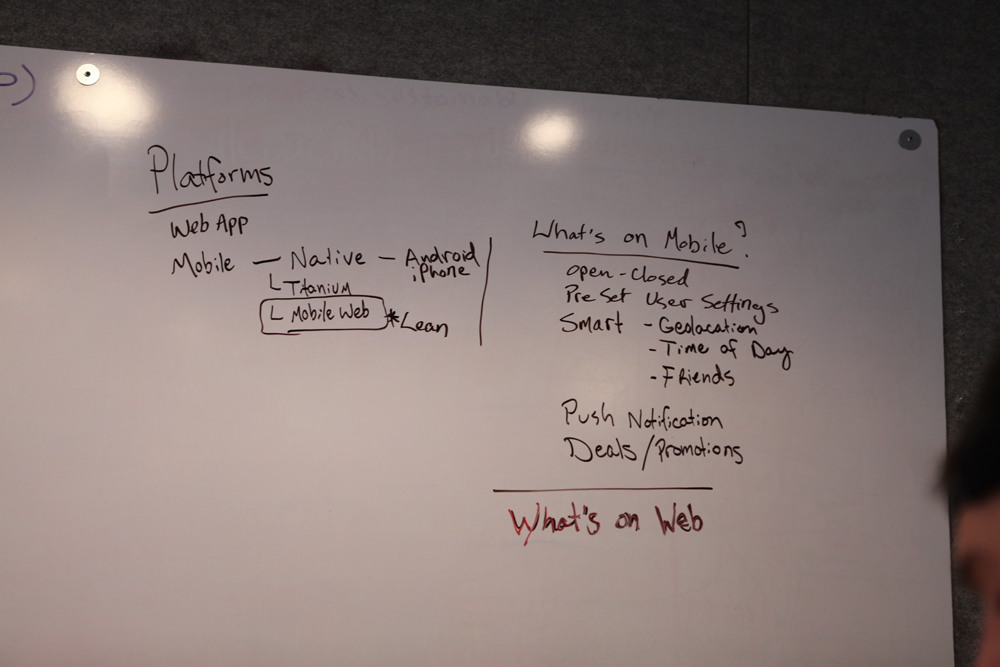 Platforms
Web App
Mobile — Native — Android
iPhone
└ Titanium
└ Mobile Web * Lean
What's on Mobile?
Open - Closed
Pre Set User Settings
Smart - Geolocation
- Time of Day
- Friends
Push Notification
Deals / Promotions
What's on Web